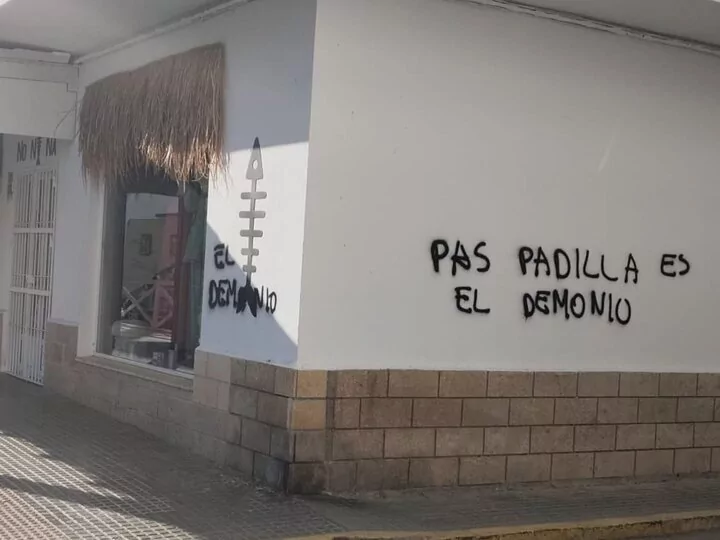 NO NI NA
EL
DEMONIO
PAS PADILLA ES
EL DEMONIO